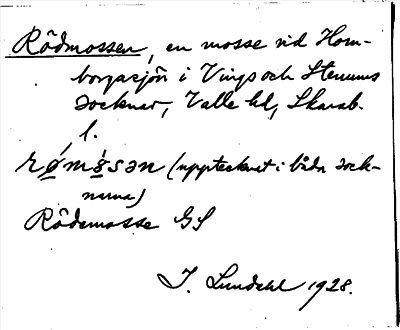 Rödmossen, en mosse vid Horn-
borgasjön i Vings och Stenums
socknar, Valle hd, Skarab.
l.
rǿmo̤sən (upptecknat i båda sock-
narna)
Rödemosse GS
I. Lundahl 1928.